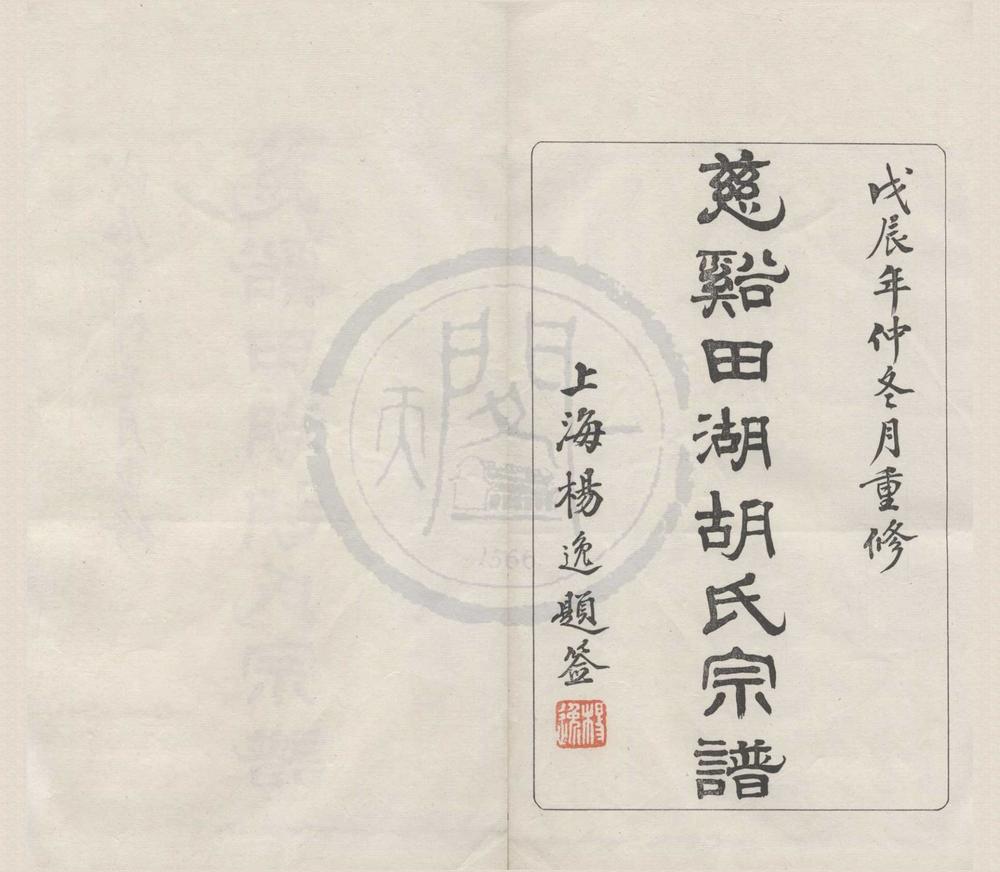 戊辰年仲冬月重修
慈谿田湖胡氏宗譜
上海楊逸題签
楊逸
天一閣
1566